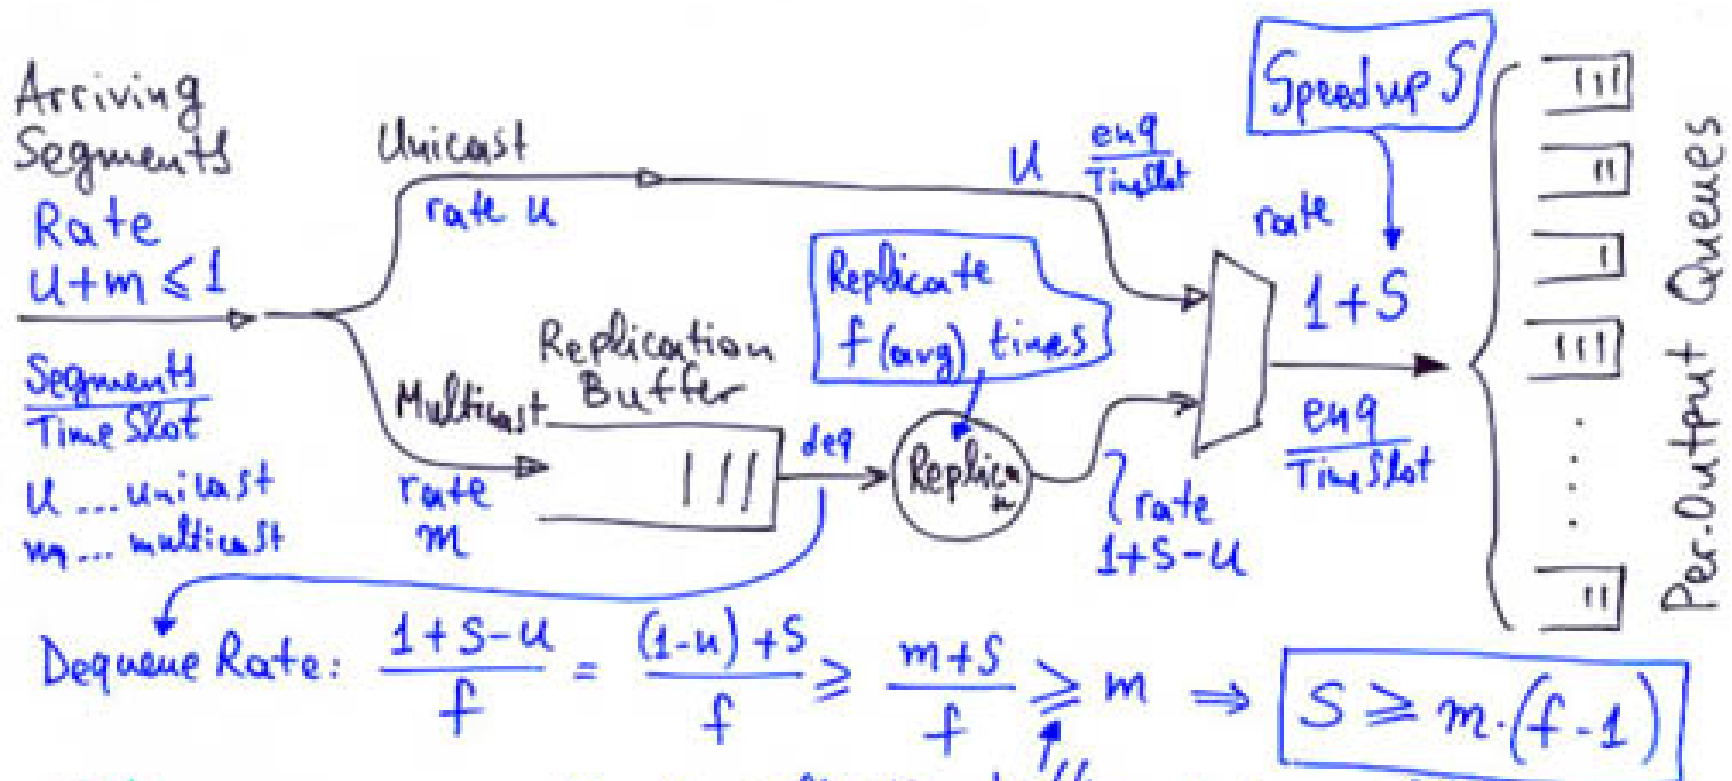 Arriving
Segments
Rate
u+m ≤ 1
Segments
Time Slot
u ... unicast
m ... multicast
Unicast
rate u
Multicast
rate
m
Replication
Buffer
deq
Replicate
f (avg) times
Replica
u enq
Time Slot
rate
1+S-u
Speedup S
rate
1+S
enq
Time Slot
Per-Output Queues
Dequeue Rate: 1+S-u / f = (1-u)+S / f ≥ m+S / f ≥ m ⇒ S ≥ m·(f-1)